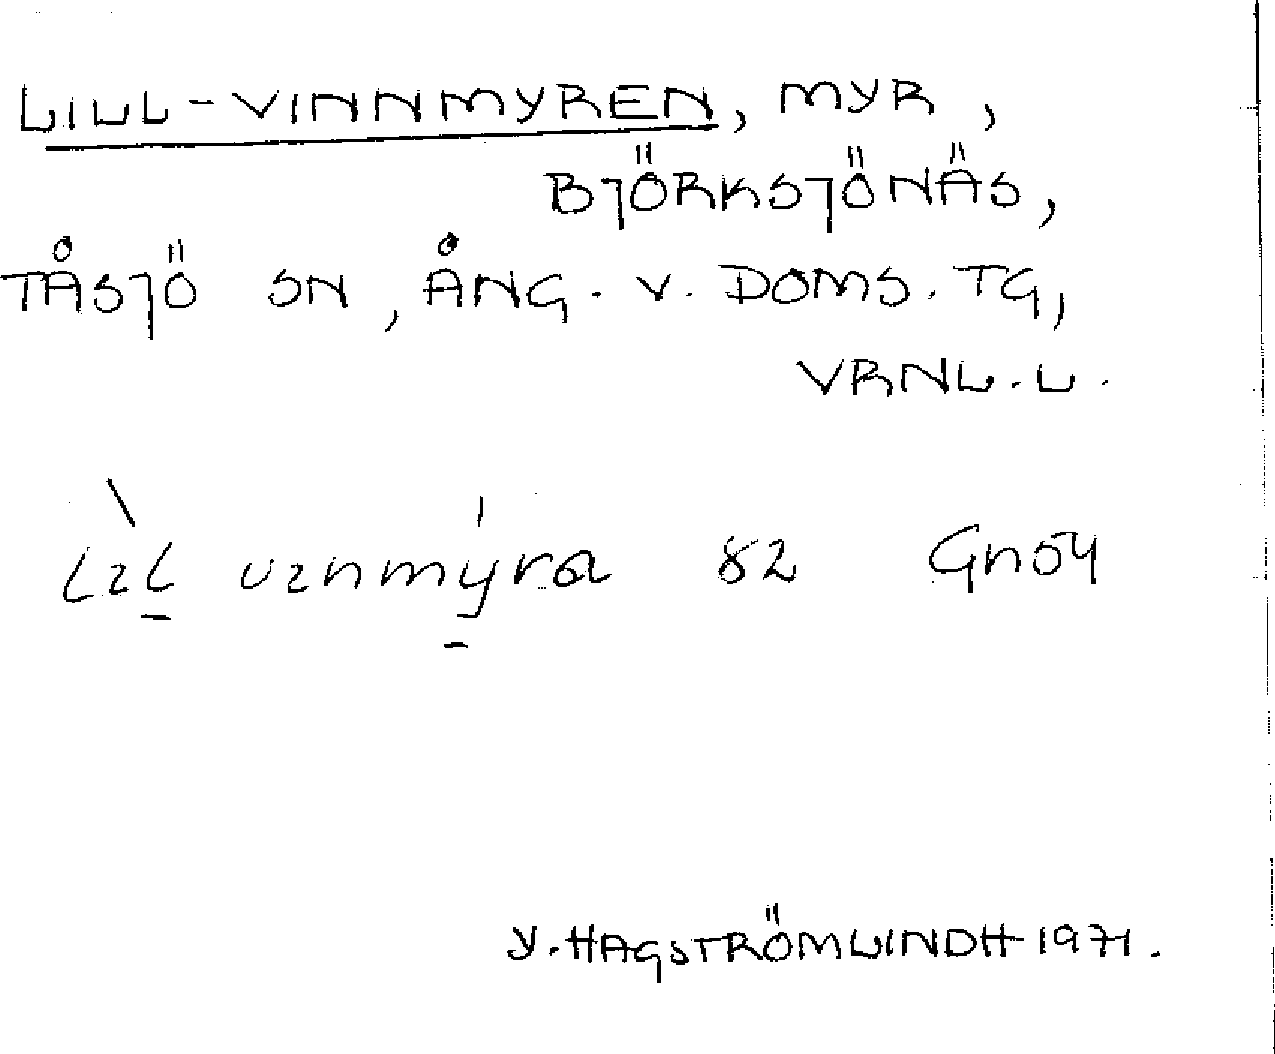 LILL-VINNMYREN, MYR,
BJÖRKSJÖNÄS,
TÅSJÖ SN, ÅNG. V. DOMS. TG,
VRNL. L.
lɩl vɩnmyra 82 Gnö4
Y. HAGSTRÖMLINDH 1971.